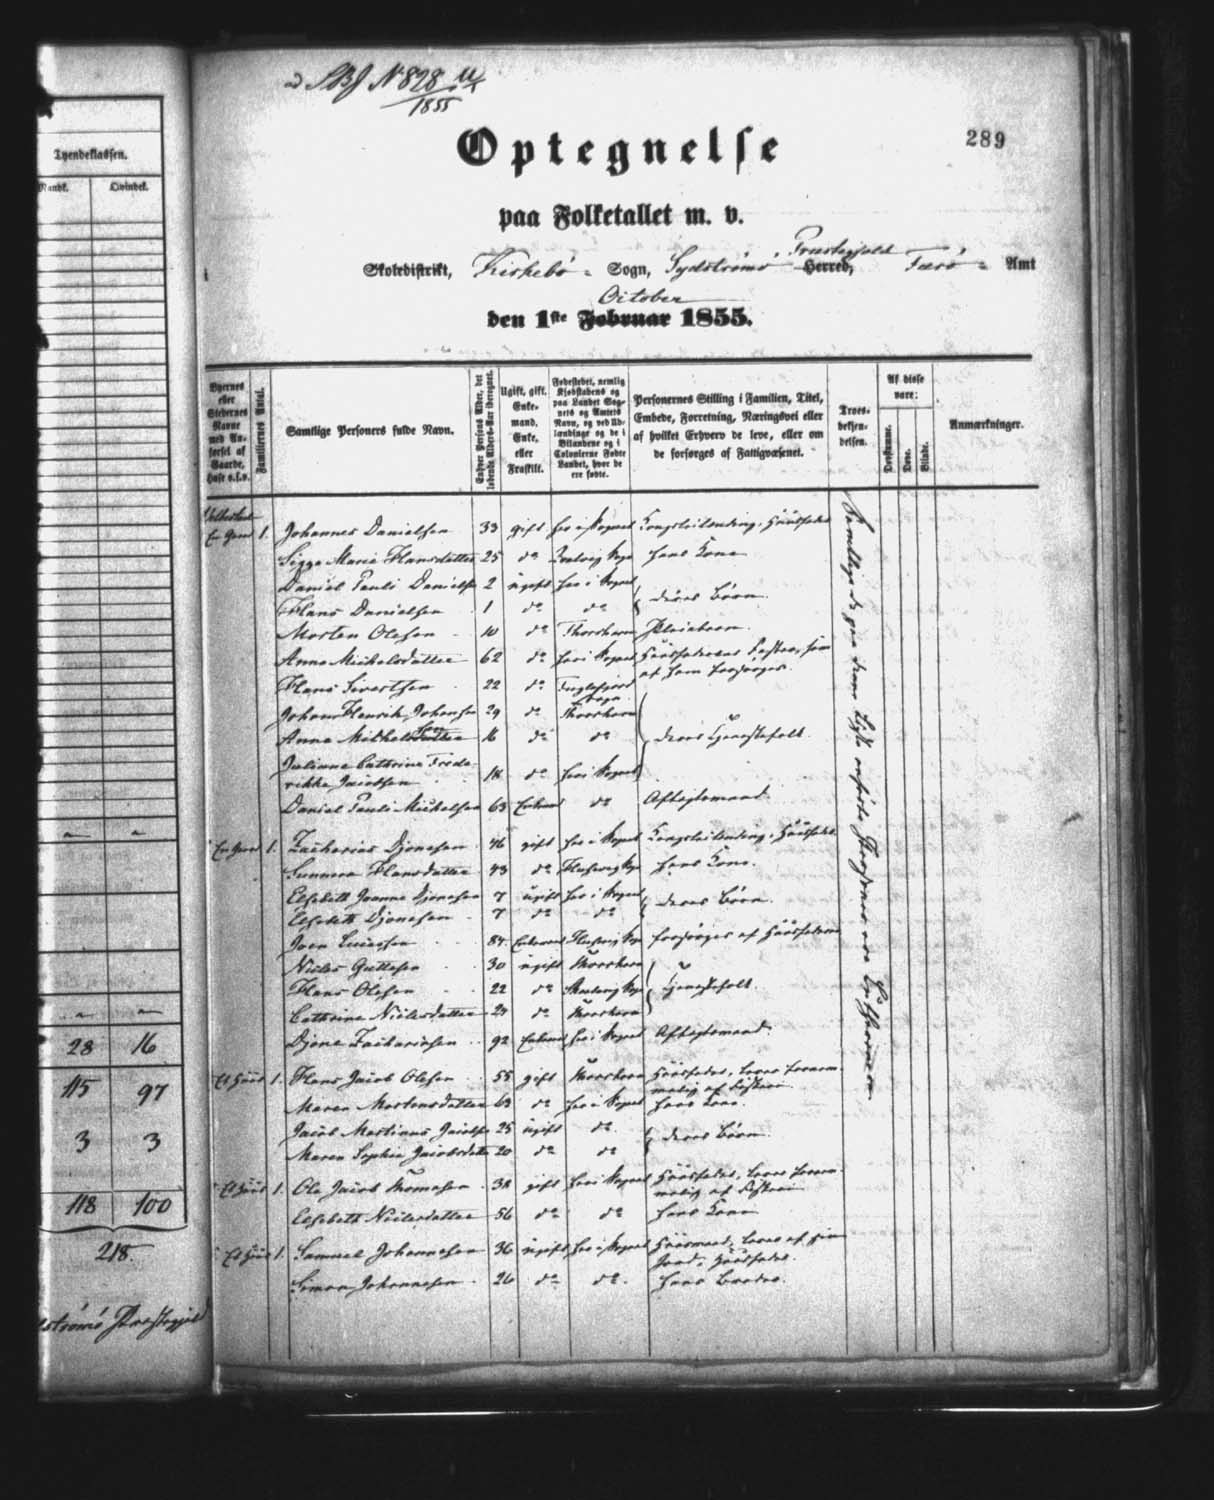 Tyendeklassen.
Mandk. Qvindek.
28 16
115 97
3 3
118 100
218.
Præstegjeld
N 828
1855
289
Optegnelse
paa Folketallet m. v.
Skoledistrikt, Kirkebø Sogn, Sydstrømø Præstegjeld Herred, Færø Amt
October
den 1ste Februar 1855.
Byernes eller Stedernes Navne med Anførsel af Gaarde, Huse o.s.v.
Familiernes Antal.
Samtlige Personers fulde Navn.
Enhver Persons Alder, det løbende Alders-Aar iberegnet.
Ugift, gift, Enkemand, Enke, eller Fraskilt.
Fødestedet, nemlig Kjøbstadens og paa Landet Sognets og Amtets Navn, og ved Udlændinge og de i Bilandene og i Colonierne Fødte Landet, hvor de ere fødte.
Personernes Stilling i Familien, Titel, Embede, Forretning, Næringsvei eller af hvilket Erhverv de leve, eller om de forsørges af Fattigvæsenet.
Troesbekjendelsen.
Af disse vare:
Døvstumme.
Døve.
Blinde.
Anmærkninger.
En Gaard 1. Johannes Danielsen 33 gift her i Sognet Kongsleilending, Huusfader
Sigga Marie Hansdatter 25 do hans Kone
Daniel Pauli Danielsen 2 ugift her i Sognet
Hans Danielsen 1 do do deres Børn
Morten Olesen 10 do Thorshavn Pleiebarn
Anna Michelsdatter 62 do her i Sognet Huusfaderens Faster, som
af ham forsørges.
Hans Sivertsen 22 do Fuglefjord
Sogn
Johan Henrik Johansen 29 do Thorshavn
Anna Michelsdatter 16 do do deres Tjenestefolk
Julianne Cathrine Frede-
rikke Jacobsen 18 do her i Sognet
Daniel Pauli Michelsen 63 Enkem do Aftægtsmand
En Gaard 1. Zacharias Djonesen 46 gift her i Sognet Kongsleilending, Huusfader
Sunneva Hansdatter 43 do hans Kone.
Elsebeth Joanna Djonesen 7 ugift her i Sognet
Elsebeth Djonesen 7 do do deres Børn.
Joen 84 Enkemand forsørges af Huusfaderen
Niclas Guttesen 30 ugift Thorshavn
Hans Olesen 22 do Tjenestefolk.
Cathrine Niclesdatter 24 do Thorshavn
Djone Zachariasen 92 Enkem her i Sognet Aftægtsmand
Et Huus 1. Hans Jacob Olesen 55 gift Thorshavn Huusfader, lever fornem-
melig af Fiskeri
Maren Mortensdatter 63 do her i Sognet hans Kone.
Jacob Martinus Jacobsen 25 ugift do
Maren Sophie Jacobsdatter 20 do do deres Børn.
Et Huus 1. Ole Jacob Thomasen 38 gift her i Sognet Huusfader, lever fornem-
melig af Fiskeri
Elsebeth Niclesdatter 56 do do hans Kone
Et Huus 1. Samuel Johannesen 36 ugift her i Sognet Huusmand, lever af sin
Jord, Huusfader.
Simon Johannesen 26 do do. hans Broder.
Samtlige de paa denne Liste anførte Personer ere Lutheranere